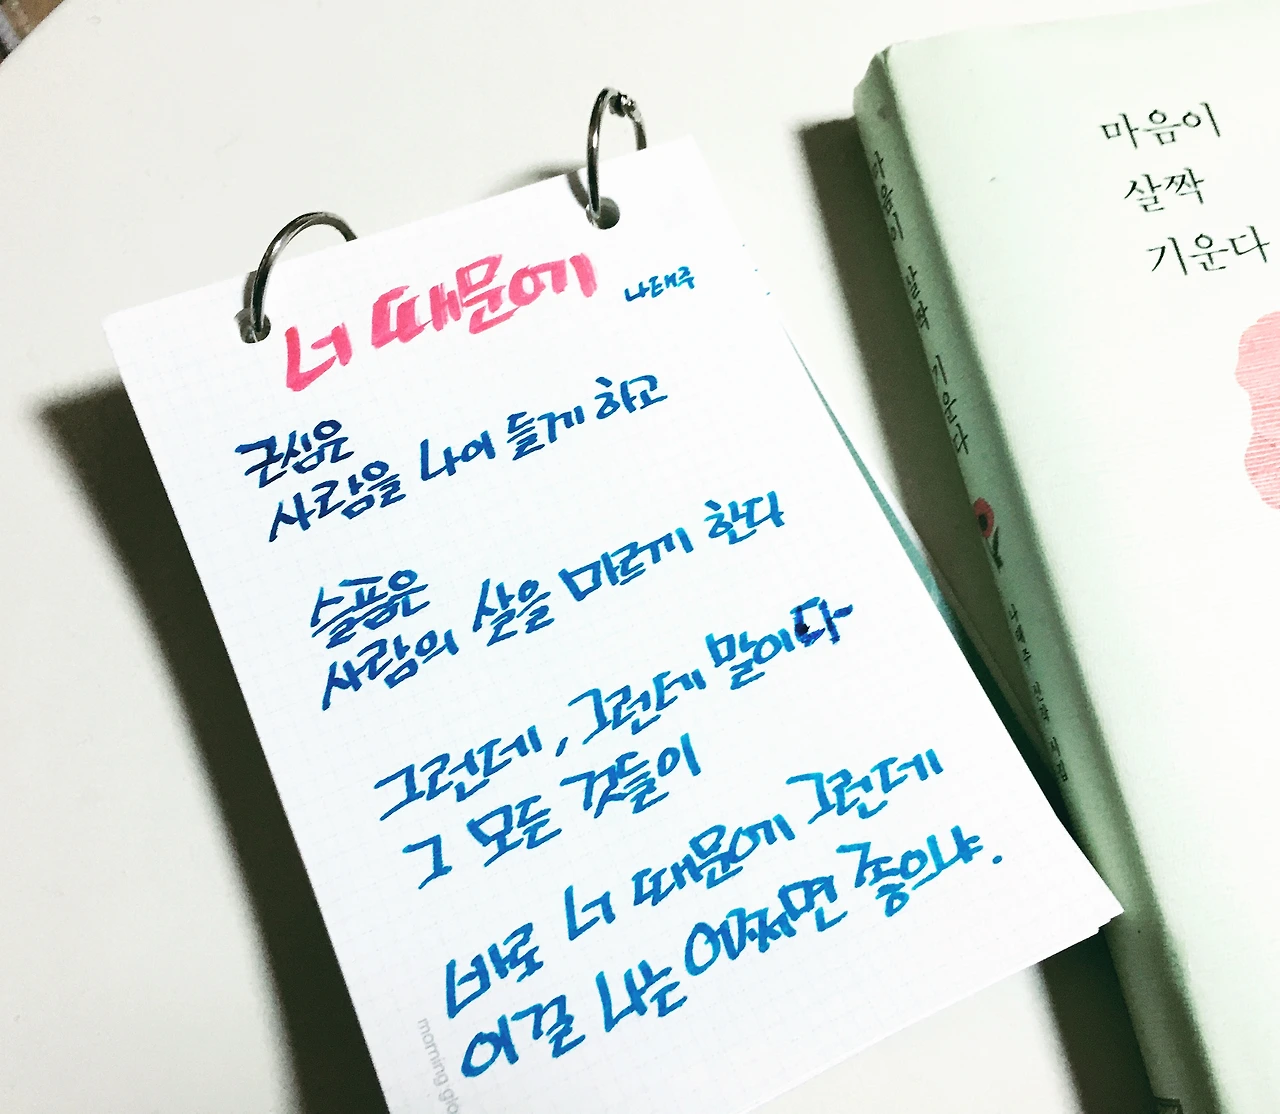 너 때문에 나태주
근심은
사람을 나이 들게 하고
슬픔은
사람의 살을 마르게 한다
그런데, 그런데 말이다
그 모든 것들이
바로 너 때문에 그런데
이걸 나는 어쩌면 좋으냐.
morning glo
마음이
살짝
기운다
마음이 살짝 기운다
나태주 신작 시집